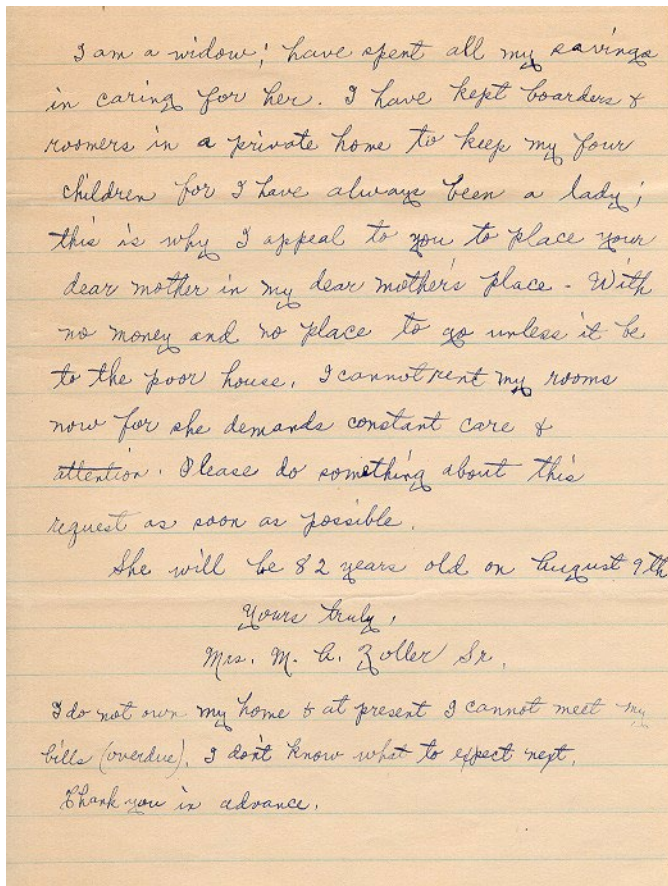 I am a widow; have spent all my savings
in caring for her. I have kept boarders &
roomers in a private home to keep my four
children for I have always been a lady;
this is why I appeal to you to place your
dear mother in my dear mother's place - With
no money and no place to go unless it be
to the poor house. I cannot rent my rooms
now for she demands constant care &
attention. Please do something about this
request as soon as possible.
She will be 82 years old on August 9th
Yours truly,
Mrs. M. A. Zoller Sr.
I do not own my home & at present I cannot meet my
bills (overdue). I don't know what to expect next.
Thank you in advance.